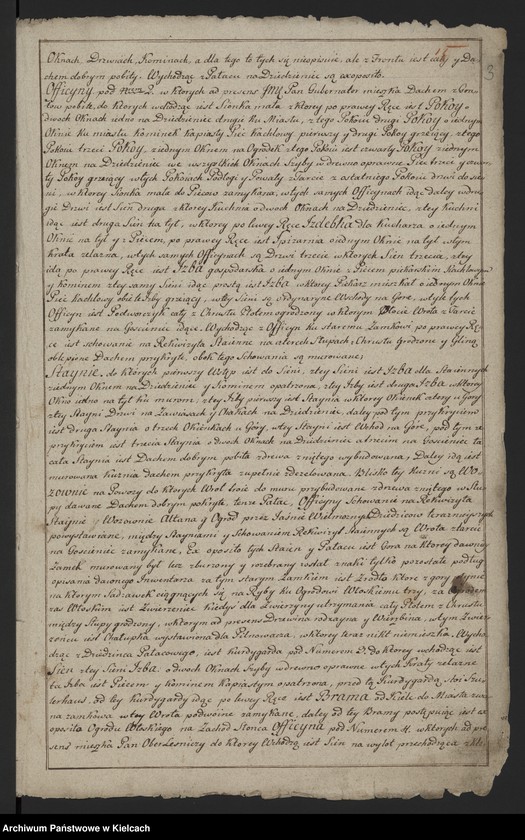 Oknach, Drzwiach, Kominach, a dla tego te tych są nieopisane, ale z Frontu iest cały y Da-
chem dobrym pobity. Wychodząc z Pałacu na Dziedziniec są exoposito.
3
Officyny pod w których ad presens JMC Pan Gubernator mieszka Dachem z Gon-
tów pobite, do których wchodząc iest Sionka mała z ktorey po prawey Ręce iest Pokoy o
dwoch Oknach iedno na Dziedziniec drugie ku Miastu, z tego Pokoiu drugi Pokoy o iednym
Oknie ku miastu Kominek kapiasty Piec kachlowy pierwszy y drugi Pokoy grzeiący, z tego
Pokoiu trzeci Pokoy, z iednym Oknem na Ogrodek z tego Pokoiu iest czwarty Pokoy z iednym
Oknem na Dziedziniec we wszystkich Oknach Szyby w drewno oprawne Piec trzeci y czwar-
ty Pokoy grzeiący w tych Pokoiach Podłogi y Pował z Tarcic z ostatniego Pokoiu drzwi do sie-
ni, w ktorey Sionka mała do Pieców zamykana, w tych samych Officynach idąc daley w dru-
gie Drzwi iest Sień druga z ktorey Kuchnia o dwoch Oknach na Dziedziniec, z tey Kuchni
idąc iest druga Sień na tył, w ktorey po lewey Ręce Izdebka dla Kucharza o iednym
Oknie na tył y z Piecem, po prawey Ręce iest Spizarnia o iednym Oknie na tył w tym
Krata żelazna, w tych samych Officynach są Drzwi trzecie w ktorych Sień trzecia, z tey
idąc po prawey Ręce iest Izba gospodarska o iednym Oknie z Piecem piekarskim Kachlowym
y kominem z tey samy Sieni idąc prosto iest Izba w ktorey Piekarz mieszkał o iednym Oknie
Piec kachlowy obie te Izby grzeiący, w tey Sieni są ordynaryine Wschody na Gorę, w tyle tych
Officyn iest Podworczyk cały z Chrustu Płotem ogrodzony w ktorym Wrota z Tarcic
zamykane na Gosciniec idące. Wychodząc z Officyn ku staremu Zamkowi po prawey Rę-
ce iest schowanie na Rekwizyta Staienne na cterech Słupach z Chrustu grodzone y Gliną
oblepione Dachem przykryte, obok tego Schowania są murowane
Staynie, do których pierwszy Wstęp iest do Sieni, z tey Sieni iest Izba dla Staiennych
z iednym Oknem na Dziedziniec y Kominem opatrzona, z tey Izby iest druga Izba w ktorey
Okno iedno na tył ku murom, z tey Izby pierwszy iest Staynia w ktorey Okienek cztery u Gory
z tey Stayni Drzwi na Zawiasach y Hakach na Dziedziniec, daley pod tym przykryciem
iest druga Staynia o trzech Okienkach u Gory, w tey Stayni iest Wschod na Gorę, pod tym że
przykryciem iest trzecia Staynia z dwoch Oknach na Dziedziniec a trzecim na Gosciniec ta
cała Staynia iest Dachem dobrym pobita z drzewa rzniętego wybudowana, Daley idą iest
murowana Kuźnia dachem przykryta zupełnie zdezelowana. Blisko tey Kuźni są Wo-
zownie na Powozy do ktorych Wrot do muru przybudowane z drzewa rzniętego w Słu-
py dawane Dachem dobrym pokryte, tenże Pałac, Officyny Schowanie na Rekwizyta
Staynie y Wozownie Altana y Ogrod przez Jaśnie Wielmożnych Dziedzicow teraznieyszych
powystawiane, między Stayniami y Schowaniem Rekwizyt Staiennych są Wrota z tarcic
na Gosciniec zamykane, Ex oposito tych Staien y Pałacu iest Gora na ktorey dawny
Zamek murowany był lecz zburzony y rozebrany został znaki tylko pozostałe podług
opisania dawnego Inwentarza za tym starym Zamkiem iest Zrodło ktore z gory płynie
na ktorym Sadzawek ciągnących się na Ryby ku Ogrodowi Włoskiemu trzy, za Ogrodem
zaś Włoskim iest Zwierzyniec kiedyś dla Zwierzyny utrzymania cały Płotem z Chrustu
między Słupy grodzony, w ktorym ad presens Drzewina rodzayna y Wierzbina, w tym Zwie-
rzyncu iest Chałupka wystawiona dla Pilnowacza, w ktorey teraz nikt niemieszka. Wycho-
dząc z Dziedzińca Pałacowego, iest Kurdygarda pod Numerem do ktorey wchodząc iest
Sień z tey Sieni Izba o dwoch Oknach Szyby w drewno oprawne w tych Kraty żelazne
ta Izba iest Piecem y Kominem Kapiastym opatrzona, przed tą Kurdygardą stoi Szul-
terhaus, od tey Kurdygardy idąc po lewey Ręce iest Brama od Kielc do Miasta zwa-
na zamkowa w tey Wrota podwoine zamykane, daley od tey Bramy postępuiąc iest ex
oposito Ogrodu Włoskiego na Zachod Słonca Officyna pod Numerem 4. w ktorych ad pre-
sens mieszka Pan Oberleśniczy do ktorey Wchodzą iest Sień na wylot przechodząca z kto-
Archiwum Państwowe w Kielcach